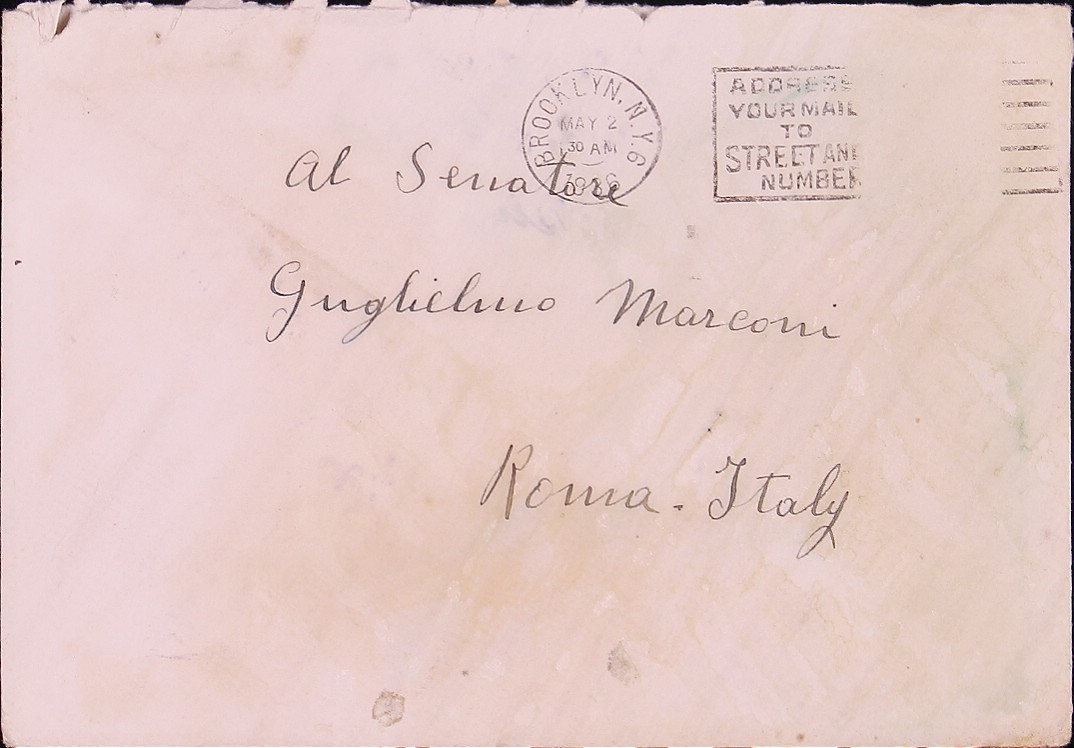 BROOKLYN, N.Y. 6
MAY 2
30 AM
1936
ADDRESS
YOUR MAIL
TO
STREET AND
NUMBER
Al Senatore
Guglielmo Marconi
Roma - Italy